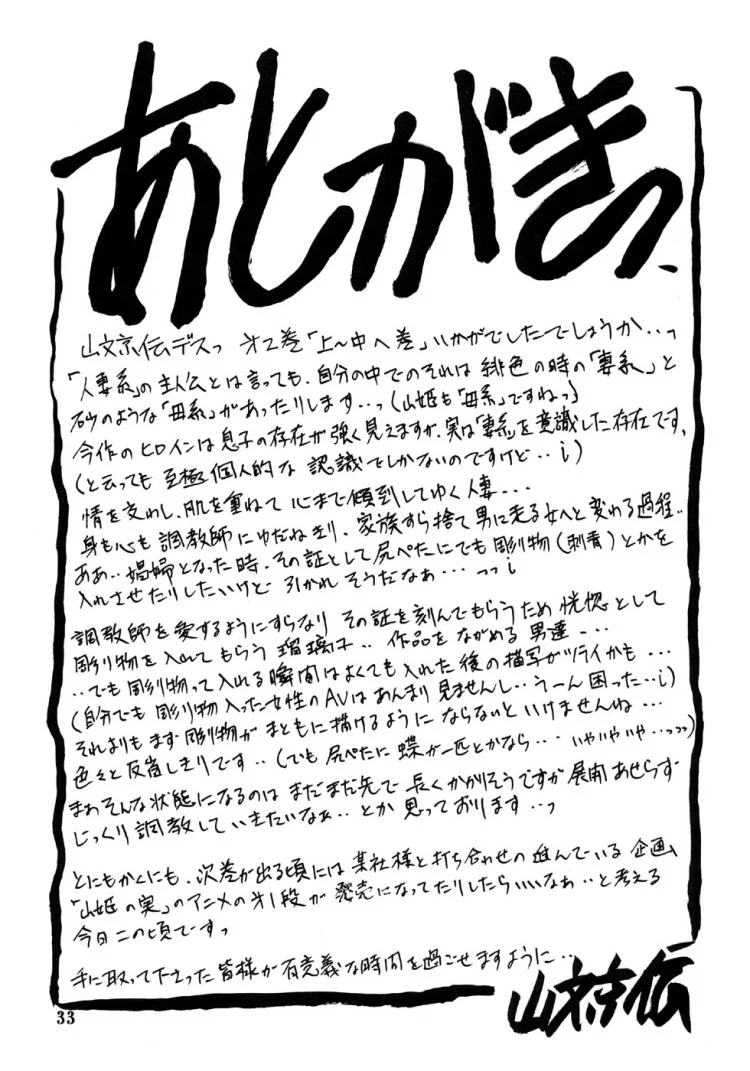 あとがきっ
山文京伝デスっ 才2巻「上〜中へ巻」いかがでしたでしょうか‥っ
「人妻系」の主人公とは言っても、自分の中でのそれは緋色の時の「妻系」と
砂のような「母系」があったりします…っ(山姫も「母系」ですねっ)
今作のヒロインは息子の存在が強く見えますが、実は「妻系」を意識した存在です、
(と云っても至極個人的な認識でしかないのですけど‥i)
情を交わし、肌を重ねて心まで傾倒してゆく人妻…
身も心も調教師にゆだねきり、家族すら捨て男に走る女へと変わる過程‥
ああ‥娼婦となった時、その証として尻ぺたにでも彫物(刺青)とかを
入れさせたりしたいけど引かれそうだなぁ…っっi
調教師を愛するようにすらなり その証を刻んでもらうため恍惚として
彫り物を入れてもらう瑠璃子‥作品をながめる男達…
‥でも彫り物って入れる瞬間はよくても入れた後の描写がツライかも…
(自分でも彫り物入った女性のAVはあんまり見ませんし‥うーん困った…i)
それよりもまず彫り物がまともに描けるようにならないといけませんね…
色々と反省しきりです‥(でも尻ぺたに蝶が一匹とかなら…いやいやいや…っっっ)
まぁそんな状態になるのはまだまだ先で長くかかりそうですが展開あせらず
じっくり調教していきたいなぁ‥とか思っております…っ
とにもかくにも、次巻が出る頃には某社様と打ち合わせの進んでいる企画
「山姫の実」のアニメの才1段が発売になってたりしたらいいなぁ‥と考える
今日この頃ですっ
手に取って下さった皆様が有意義な時間を過ごせますように…
山文京伝
33